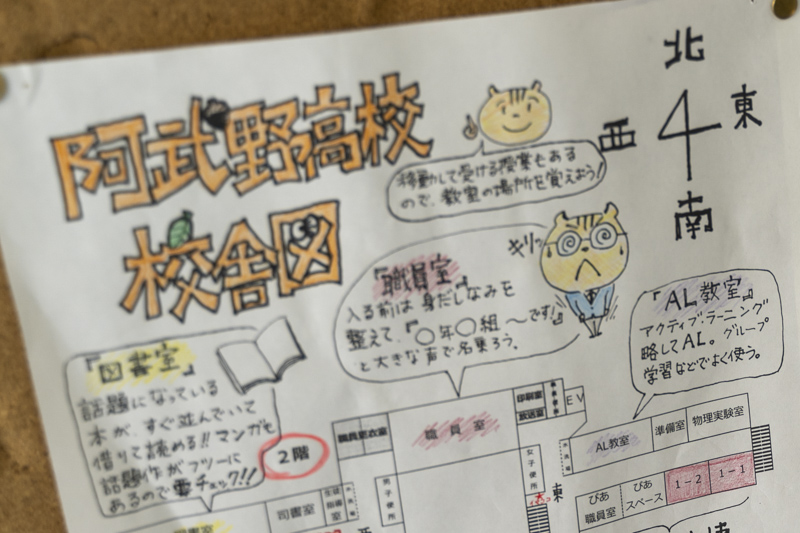 阿武野高校
校舎図
北
東
西
南
移動して受ける授業もある
ので、教室の場所を覚えよう!
キリッ
『職員室』
入る前は身だしなみを
整えて、『○年○組～です!』
と大きな声で名乗ろう。
『AL教室』
アクティブ・ラーニング
略してAL。グループ
学習などでよく使う。
『図書室』
話題になっている
本が、すぐ並んでいて
借りて読める!!マンガも
話題作がフツーに
あるので要チェック!!
2階
職員更衣室
職員室
印刷室
放送室
EV
女子便所
男子便所
東
AL教室
準備室
物理実験室
ぴあ
職員室
ぴあ
スペース
1-2
1-1
司書室
生徒
指導室